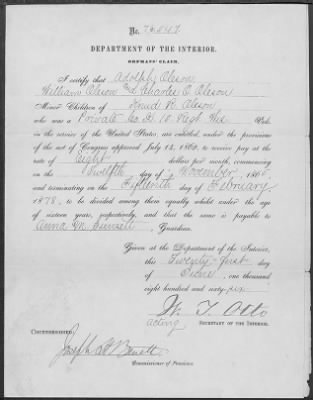 No. 76.547
DEPARTMENT OF THE INTERIOR.
ORPHANS' CLAIM.
I certify that Adolph Oleson
William Oleson and Charles O. Oleson
Minor Children of Knud B. Oleson
who was a Private Co. D. 10 Regt Wis Vols.
in the service of the United States, are entitled, under the provisions
of the act of Congress approved July 14, 1862, to receive pay at the
rate of Eight dollars per month, commencing
on the Twelfth day of November, 186
and terminating on the Fifteenth day of February
1878, to be divided among them equally whilst under the age
of sixteen years, respectively, and that the same is payable to
Anna M. Guardian.
Given at the Department of the Interior,
this Twenty-first day
of June, one thousand
eight hundred and sixty-six
W. T. Otto
Acting SECRETARY OF THE INTERIOR.
COUNTERSIGNED,
Joseph H. Barrett
Commissioner of Pensions.